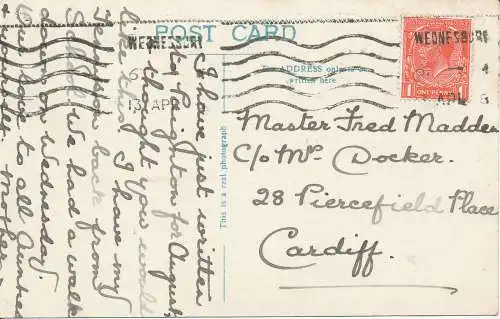 POST CARD
WEDNESBURY
WEDNESBURY
6
13 APR
APR
ONE PENNY
The ADDRESS only to be
written here
This is a real photograph
Master Fred Madde
C/o Mrs Docker.
28 Piercefield Place
Cardiff.
I have just written
to Paignton for August.
I thought you would
like this. I have my
back from
School. We had a walk
down on Wednesday.
love to all Aunties
Mother.